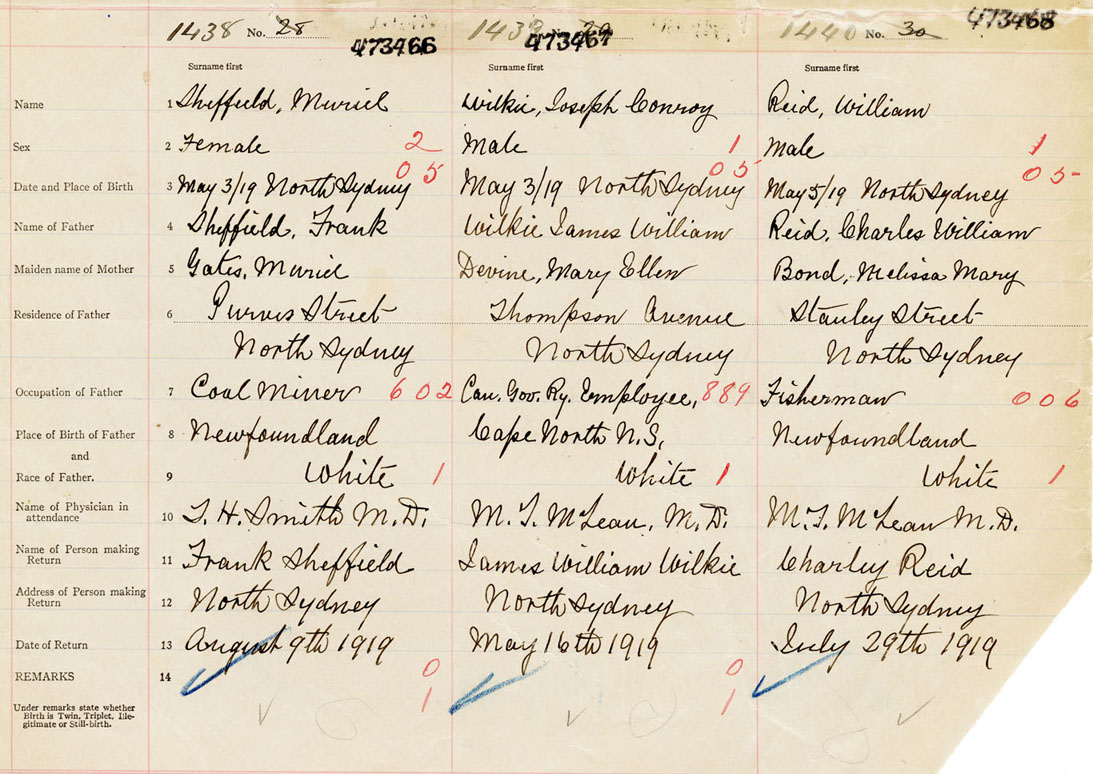 1438 No. 28 473466 143 473467 1440 No. 30 473468
Surname first Surname first Surname first
Name 1 Sheffield, Muriel Wilkie, Joseph Conroy Reid, William
Sex 2 Female 2 Male 1 Male 1
Date and Place of Birth 3 May 3/19 North Sydney 05 May 3/19 North Sydney 05 May 5/19 North Sydney 05
Name of Father 4 Sheffield, Frank Wilkie James William Reid, Charles William
Maiden name of Mother 5 Gates, Muriel Devine, Mary Ellen Bond, Melissa Mary
Residence of Father 6 Purves Street Thompson Avenue Stanley Street
North Sydney North Sydney North Sydney
Occupation of Father 7 Coal Miner 602 Can. Gov. Ry. Employee, 889 Fisherman 006
Place of Birth of Father 8 Newfoundland Cape North N.S. Newfoundland
and
Race of Father. 9 White 1 White 1 White 1
Name of Physician in
attendance 10 T. H. Smith M.D. M. T. McLean, M.D. M. T. McLean M.D.
Name of Person making
Return 11 Frank Sheffield James William Wilkie Charley Reid
Address of Person making
Return 12 North Sydney North Sydney North Sydney
Date of Return 13 August 9th 1919 May 16th 1919 July 29th 1919
REMARKS 14 0 0
Under remarks state whether 1 1
Birth is Twin, Triplet, Ille-
gitimate or Still-birth.